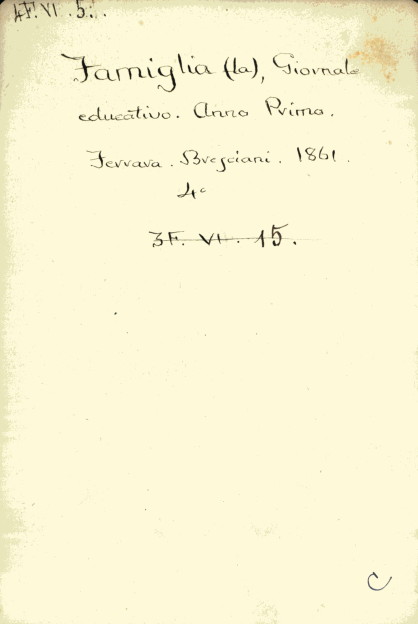 4F. VI. 5.
Famiglia (la), Giornale
educativo. Anno Primo.
Ferrara. Bresciani. 1861.
4°
3F. VI. 15.
C